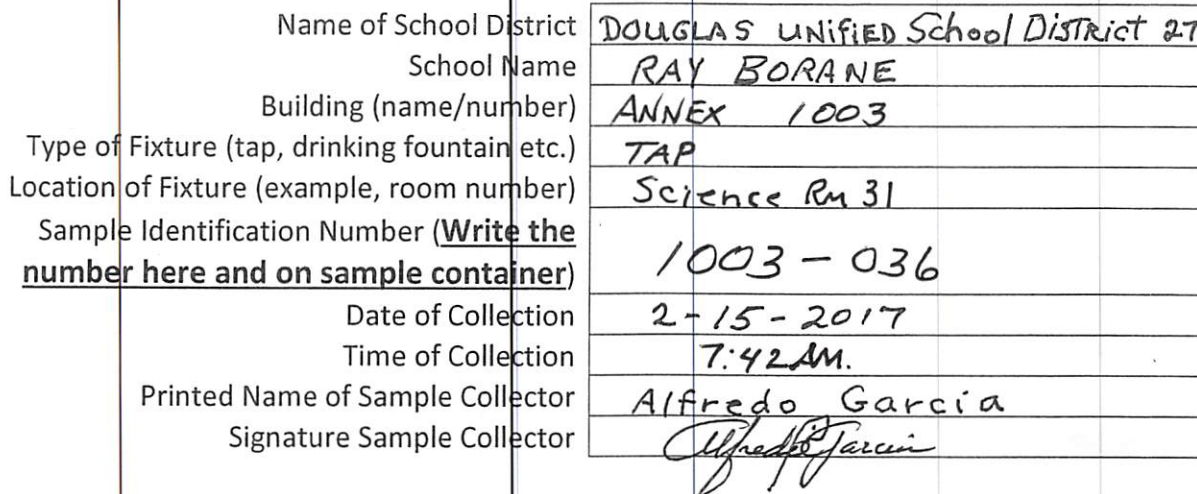 Name of School District DOUGLAS UNIFIED School DISTRICT 27
School Name RAY BORANE
Building (name/number) ANNEX 1003
Type of Fixture (tap, drinking fountain etc.) TAP
Location of Fixture (example, room number) Science Rm 31
Sample Identification Number (Write the
number here and on sample container) 1003-036
Date of Collection 2-15-2017
Time of Collection 7:42 AM.
Printed Name of Sample Collector Alfredo Garcia
Signature Sample Collector Alfredo Garcia